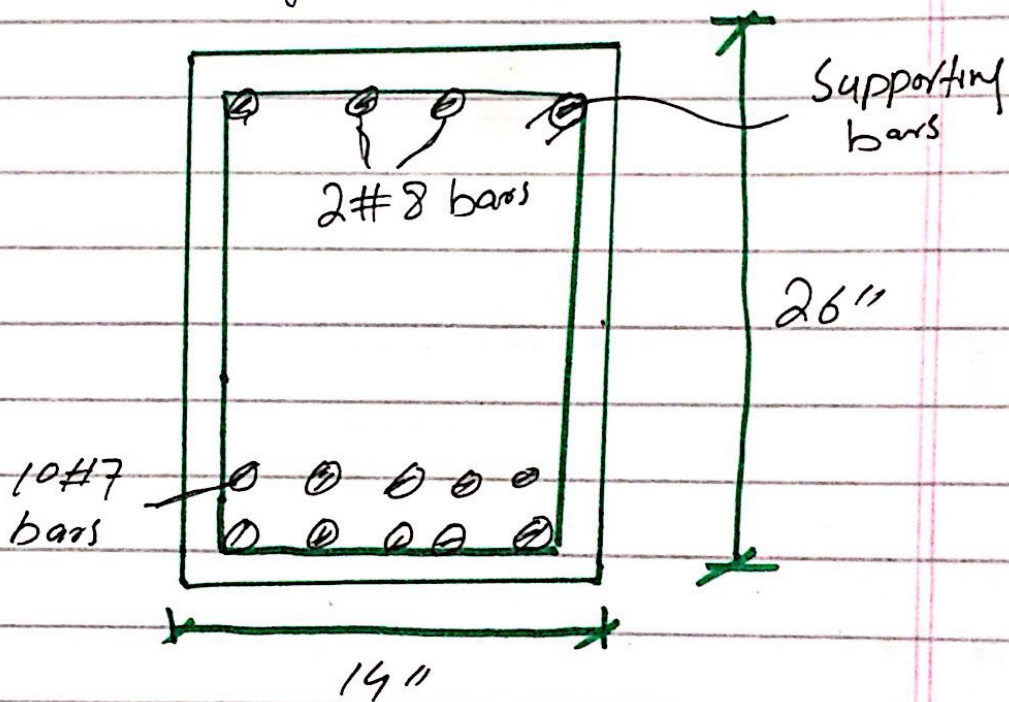 Supporting
bars
2#8 bars
26"
10#7
bars
14"